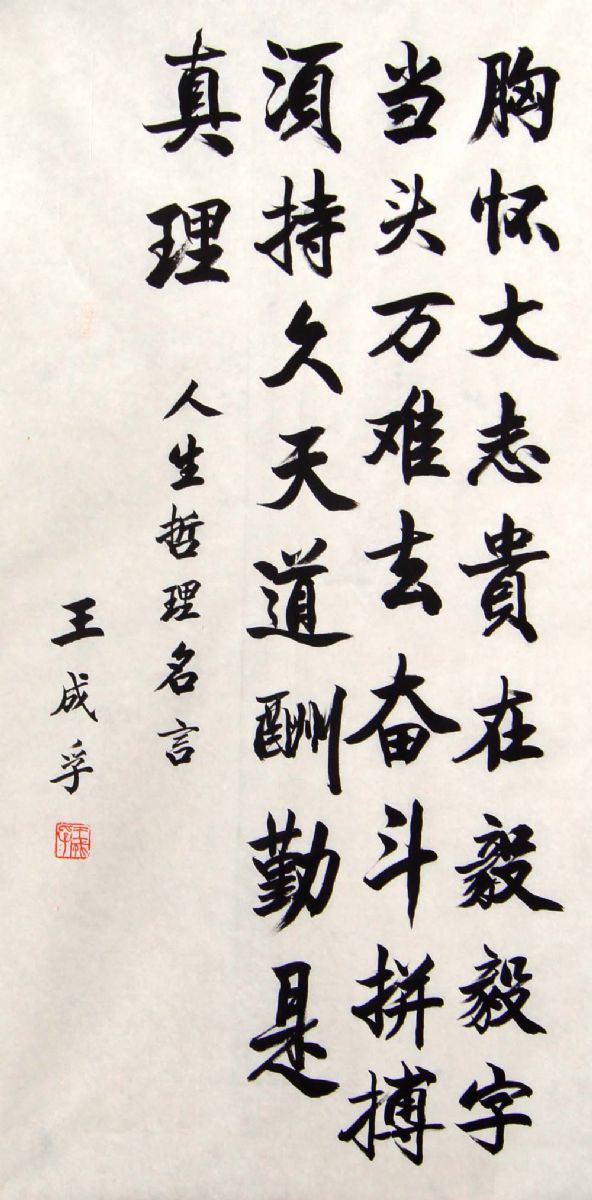 胸怀大志貴在毅毅字
当头万难去奋斗拼搏
須持久天道酬勤是
真理
人生哲理名言
王成孚